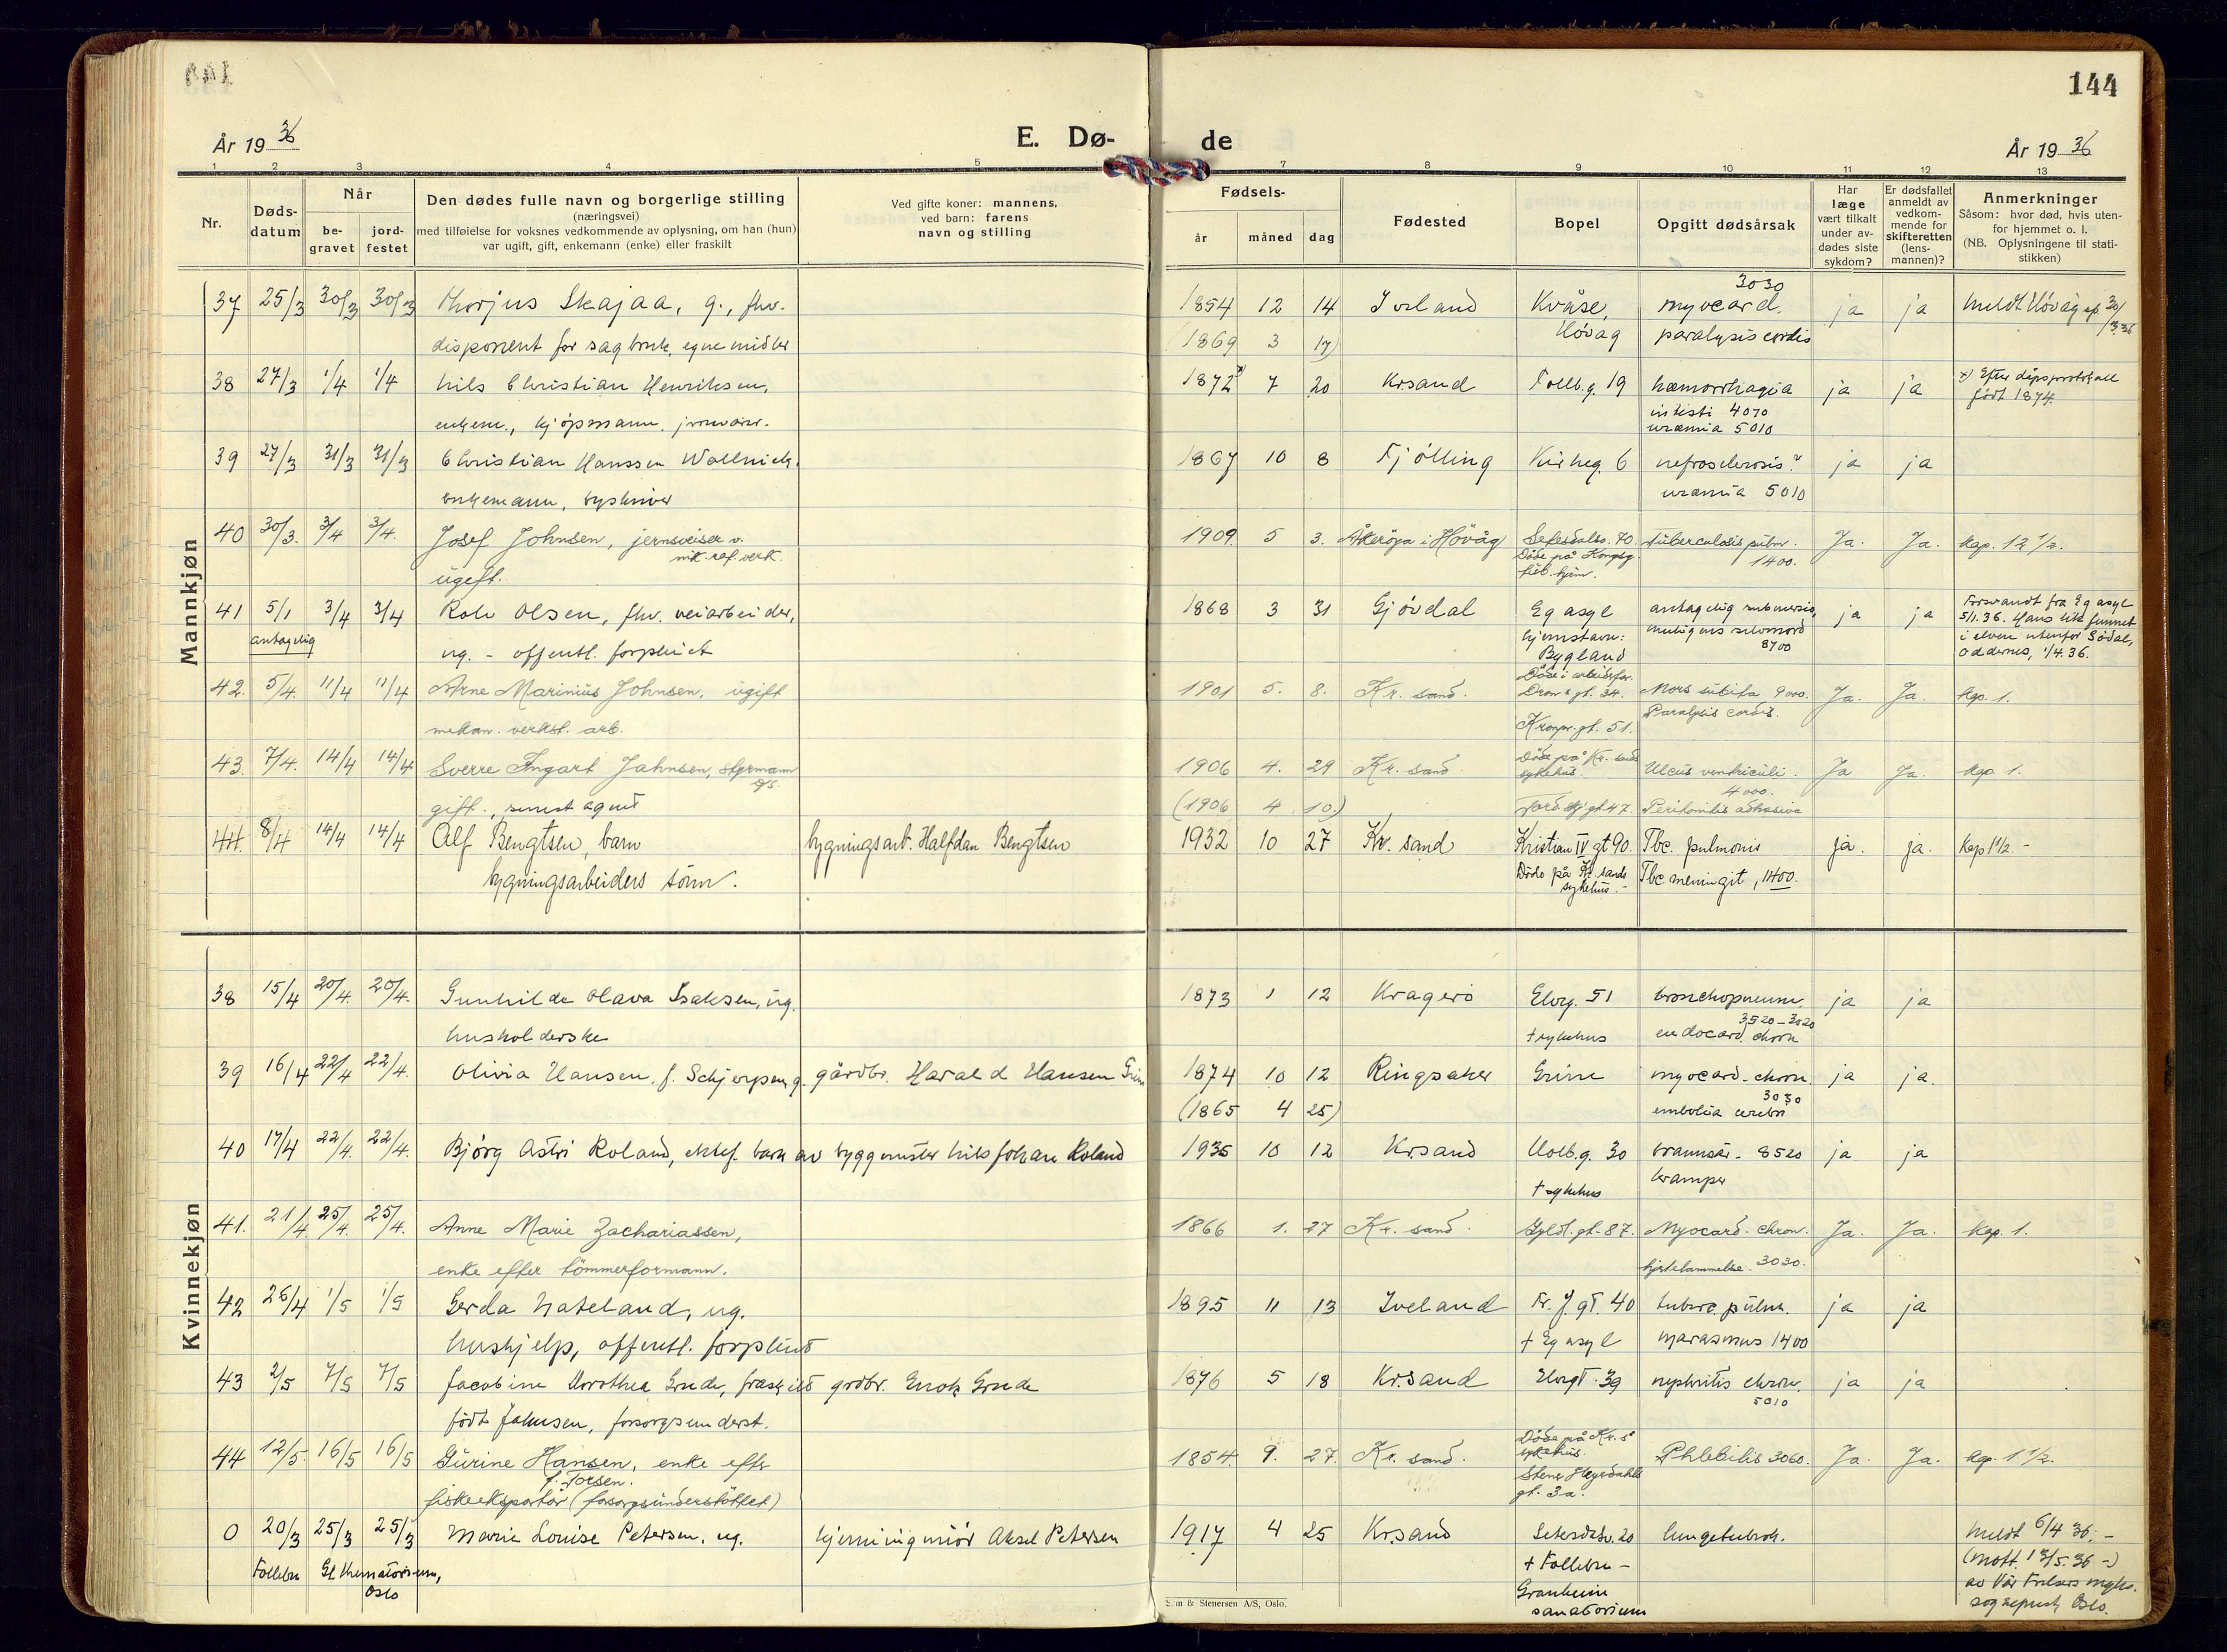 144
År 19 36
E. Dø-
de
År 19 36
1 2 3 4 5 7 8 9 10 11 12 13
Nr.
Døds-
datum
Når
be-
gravet
jord-
festet
Den dødes fulle navn og borgerlige stilling
(næringsvei)
med tilføielse for voksnes vedkommende av oplysning, om han (hun)
var ugift, gift, enkemann (enke) eller fraskilt
Ved gifte koner: mannens,
ved barn: farens
navn og stilling
Fødsels-
år måned dag
Fødested
Bopel
Opgitt dødsårsak
Har
læge
vært tilkalt
under av-
dødes siste
sykdom?
Er dødsfallet
anmeldt av
vedkom-
mende for
skifteretten
(lens-
mannen)?
Anmerkninger
Såsom: hvor død, hvis uten-
for hjemmet o. l.
(NB. Oplysningene til stati-
stikken)
Mannkjøn
37 25/3 30/3 30/3 Skajaa, g., fhv. 1854 12 14 Iveland Kvåse, 3030 myocard. ja ja meldt Høvåg
disponent for sagbruk, egne midler 1869 3 17) Høvåg paralysis cordis
38 27/3 1/4 1/4 Nils Christian Henriksen, 1872 7 20 Krsand Tollb.g. 19 hæmorrhagia ja ja x) Efter dåpsprotokoll
enkem., kjøpmann, født 1874.
uræmia 5010
39 27/3 31/3 31/3 Christian Hanssen 1867 10 8 Tjølling Kirkeg. 6 nefrosclerosis ja ja
enkemann, byskriver uræmia 5010
40 30/3. 3/4 3/4. Josef Johnsen, jernsveiser v. 1909. 5 3. i Høvåg 70 Tuberculosis pulm. Ja. Ja. Kap. 1 2 1/2.
verk. Døde på Kongsg. 1400.
ugift. tub. hjem.
41 5/1 3/4 3/4 Olsen, fhv. veiarbeider, 1868 3 31 Gjøvdal Eg asyl antagelig submersio, ja ja Forsvandt fra Eg asyl
antagelig ug. - offentl. forpleiet hjemstavn: selvmord 5/1.36. Hans lik funnet
Bygland 8700 i elven utenfor Södal,
Oddernes, 1/4.36.
42. 5/4. 11/4 11/4 Arne Marinius Johnsen, ugift 1901 5. 8. Kr. sand. gt. 34. Mors subita 9000. Ja. Ja. Kap. 1.
mekan. verkst. arb. Kronpr. gt. 51. Paralysis cordis.
43. 7/4. 14/4 14/4 Sverre Ingart Jahnsen, styrmann 1906 4. 29 Kr. sand Døde på Kr. sands Ulcus ventriculi. Ja Ja. Kap. 1.
gift., senest agent (1906 4 10) sykehus. 4000.
gt 47. Peritonitis adhæsiva
44. 8/4 14/4 14/4 Alf Bengtsen, barn bygningsarb. Halfdan Bengtsen 1932 10 27 Kr. sand Kristian IV gt 90. Tbc. pulmonis ja. ja. Kap 1 1/2. -
bygningsarbeiders sönn. Döde på Kr. sands Tbc. meningit, 1400.
sykehus. -
Kvinnekjøn
38 15/4 20/4. 20/4. Gunhilde Olava Isaksen, ug. 1873 1 12 Kragerö Elvg. 51 bronchopneum. ja ja
husholderske + sykehus 3520 - 3020
endocard. chron
39 16/4 22/4 22/4. Olivia Hansen, f. g. gårdbr. Harald Hansen 1874 10 12 Ringsaker Grim myocard. chron. ja ja.
(1865 4 25) 3030
embolia cerebri
40 17/4 22/4. 22/4. Bjørg Astri Roland, ektef. barn av byggmester Nils Johan Roland 1935 10 12 Krsand Holb.g. 30 brannsår - 8520 ja ja
+ sykehus kramper
41. 21/4 25/4. 25/4. Anne Marie Zachariassen, 1866 1. 27 Kr. sand. Gyldl. gt. 87. Myocard. chron. Ja. Ja. Kap. 1.
enke efter tömmerformann. hjertelammelse. 3030.
42 26/4 1/5 1/5 Gerda Hateland, ug. 1895 11 13 Iveland gt. 40 tuberc. pulm. ja ja
hushjelp, offentl. forpleiet + Eg asyl marasmus 1400
43 2/5 7/5 7/5 Jacobine Dorothea Grude, fraskilt grdbr. Enok Grude 1876 5 18 Kr.sand Elvegt. 39 nephritis chron. ja ja
født Jahnsen, forsorgsunderst. 5010
44 12/5. 16/5 16/5 Gurine Hansen, enke efter 1854. 9. 27. Kr. sand. Døde på Kr. s. Phlebitis 3060. Ja. Ja. Kap. 1 1/2.
f. Torsen. sykehus.
fiskeeksportör (forsorgsunderstöttet) Stener Heyerdahls
gt. 3a.
0 20/3 25/3 25/3 Marie Louise Petersen, ug. Aksel Petersen 1917 4 25 Krsand 20 lungetuberk. Meldt 6/4 36. -
Follebu Gl. Krematorium, + Follebu - (mott. 13/5. 36 -)
Oslo Granheim av Vår Frelsers
sanatorium Oslo.
& Stenersen A/S, Oslo.